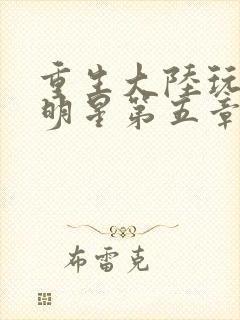 重生大陸玩
明星第五章
布雷克